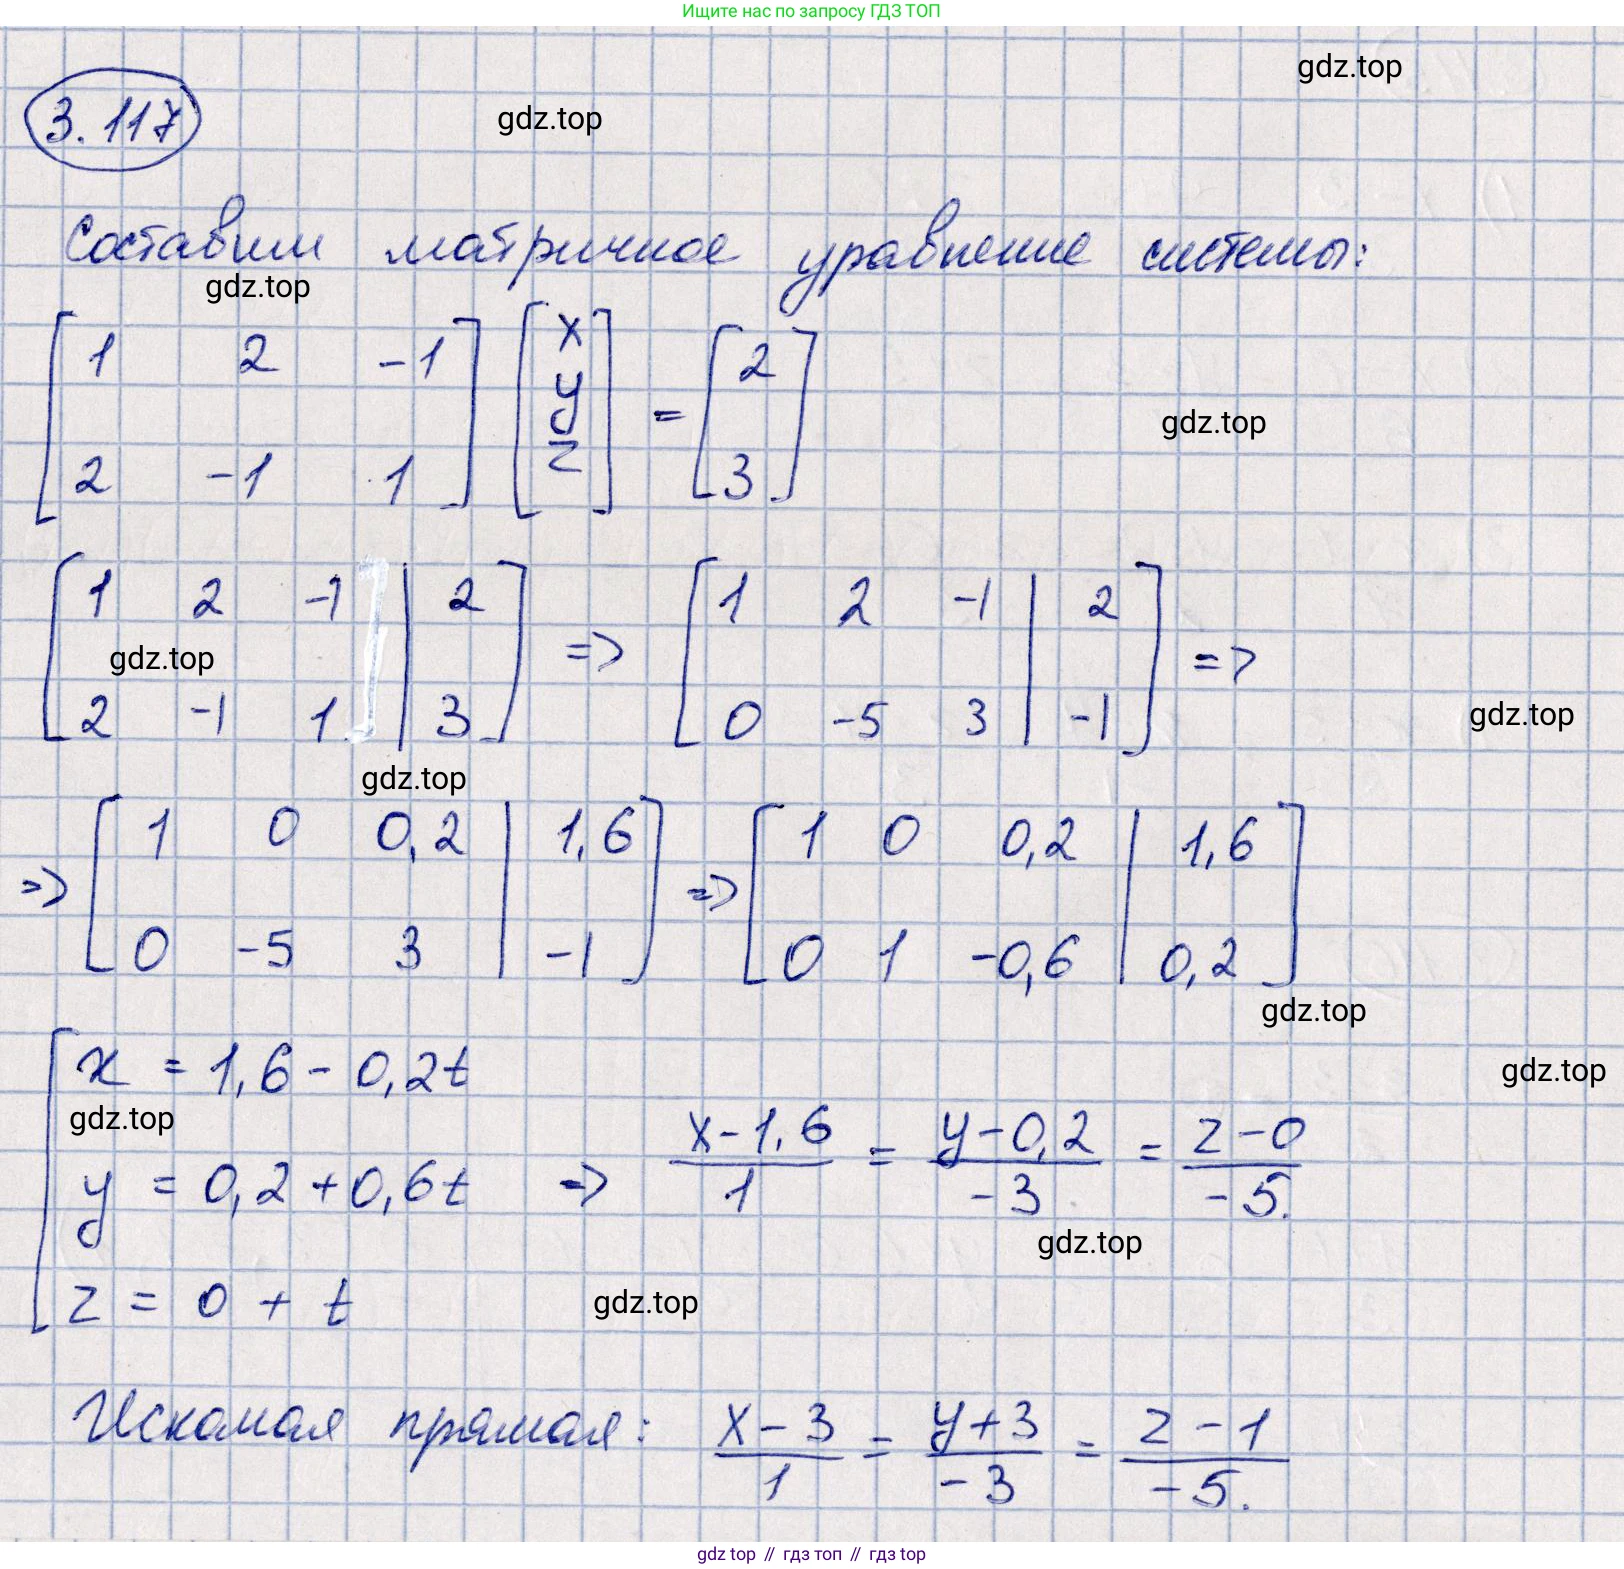 Ищите нас по запросу ГДЗ ТОП
gdz.top
3.117
gdz.top
Составим матричное уравнение системы:
gdz.top
[1 2 -1] [x] = [2]
[y]
gdz.top
[2 -1 1] [z] [3]
[1 2 -1 | 2] => [1 2 -1 | 2] =>
gdz.top
[2 -1 1 | 3] [0 -5 3 | -1]
gdz.top
gdz.top
=> [1 0 0,2 | 1,6] => [1 0 0,2 | 1,6]
[0 -5 3 | -1] [0 1 -0,6 | 0,2]
gdz.top
x = 1,6 - 0,2t
gdz.top
gdz.top
y = 0,2 + 0,6t => (x-1,6)/1 = (y-0,2)/-3 = (z-0)/-5.
gdz.top
z = 0 + t
gdz.top
Искомая прямая: (x-3)/1 = (y+3)/-3 = (z-1)/-5.
gdz top // гдз топ // гдз top